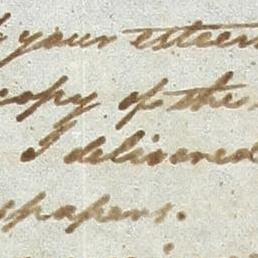 your esteem
copy of the
I delivered
spapers.